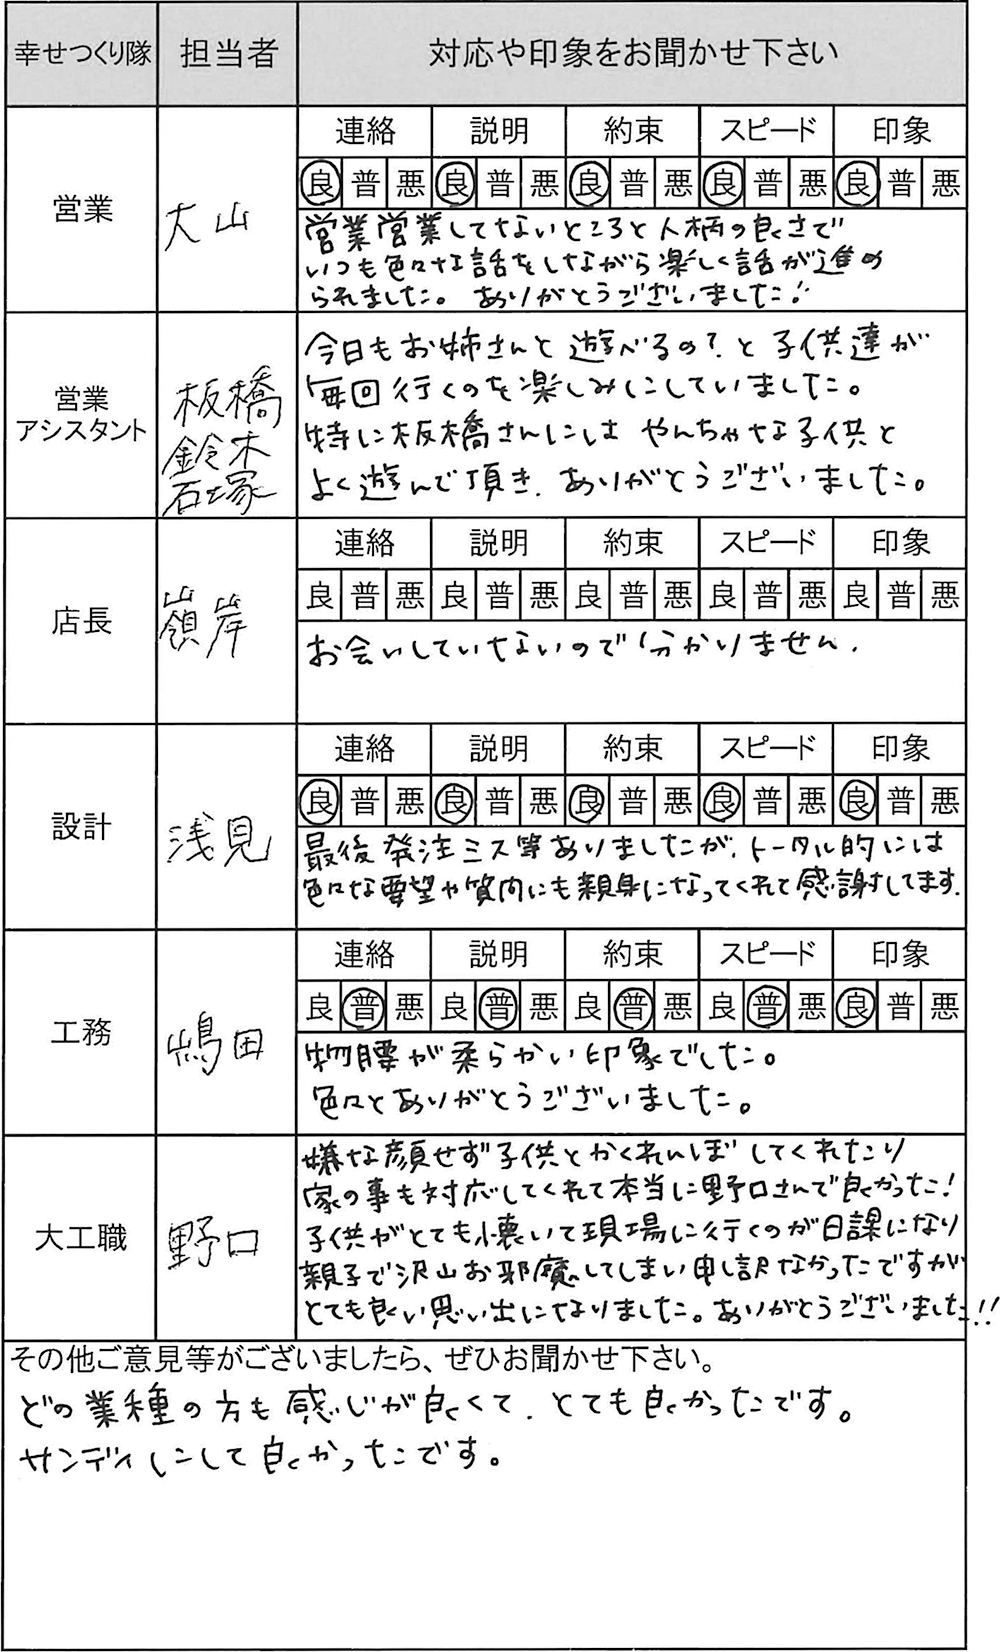 幸せつくり隊 担当者 対応や印象をお聞かせ下さい
営業 大山
連絡 説明 約束 スピード 印象
良 普 悪 良 普 悪 良 普 悪 良 普 悪 良 普 悪
営業営業してないところと人柄の良さで
いつも色々な話をしながら楽しく話が進め
られました。ありがとうございました!
営業
アシスタント
板橋
鈴木
石塚
今日もお姉さんと遊べるの?と子供達が
毎回行くのを楽しみにしていました。
特に板橋さんにはやんちゃな子供と
よく遊んで頂き、ありがとうございました。
店長 嶺岸
連絡 説明 約束 スピード 印象
良 普 悪 良 普 悪 良 普 悪 良 普 悪 良 普 悪
お会いしていないので分かりません.
設計 浅見
連絡 説明 約束 スピード 印象
良 普 悪 良 普 悪 良 普 悪 良 普 悪 良 普 悪
最後発注ミス等ありましたが、トータル的には
色々な要望や質問にも親身になってくれて感謝してます.
工務 嶋田
連絡 説明 約束 スピード 印象
良 普 悪 良 普 悪 良 普 悪 良 普 悪 良 普 悪
物腰が柔らかい印象でした。
色々とありがとうございました。
大工職 野口
嫌な顔せず子供とかくれんぼしてくれたり
家の事も対応してくれて本当に野口さんで良かった!
子供がとても懐いて現場に行くのが日課になり
親子で沢山お邪魔してしまい申し訳なかったですが
とても良い思い出になりました。ありがとうございました!!
その他ご意見等がございましたら、ぜひお聞かせ下さい。
どの業種の方も感じが良くて、とても良かったです。
サンディにして良かったです。